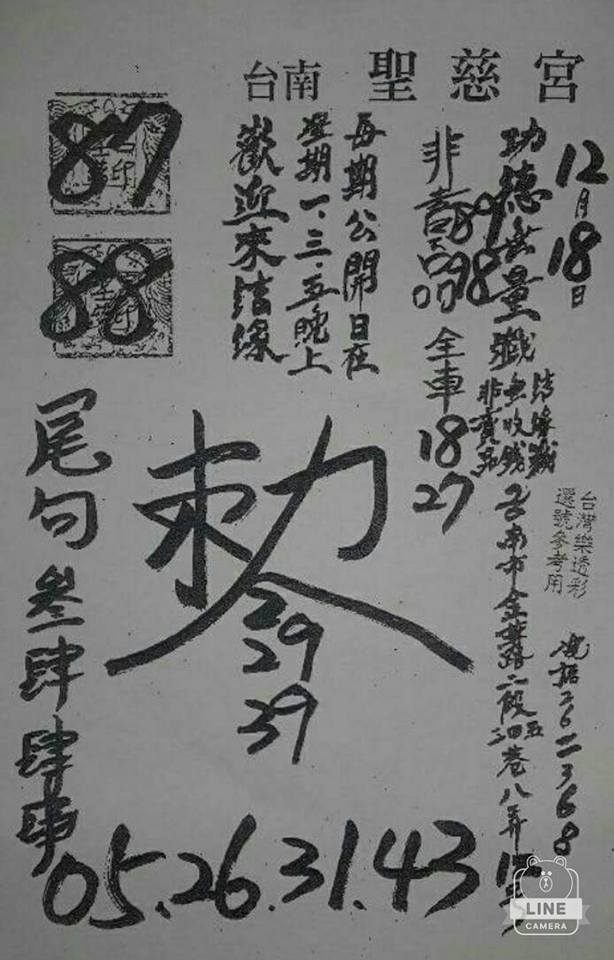 台南 聖慈宮
12月18日
功德無量
結緣
無收錢
非賣品
全車
18
27
89
98
每期公開日在
星期一.三.五晚上
歡迎來結緣
87
88
台灣樂透彩
選號參考用
台南市金華路二段
巷八弄
敕令
29
39
尾句
叁肆
肆
05.26.31.43
LINE
CAMERA